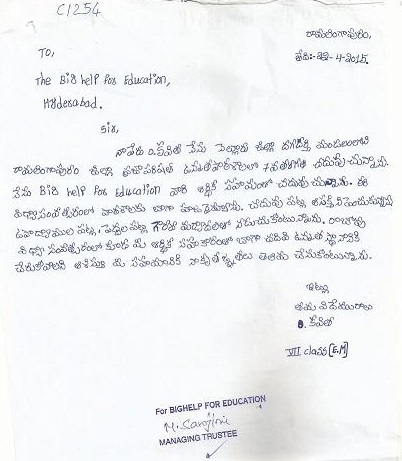 C1254
రామలింగాపురం,
తేది:-22-4-2015.
To,
The Big help For Education,
Hyderabad.
Sir,
నాపేరు ఠ.కవిత నేను నెల్లూరు జిల్లా దగదర్తి మండలంలోని
రామలింగాపురం జిల్లా ప్రజాపరిషత్ ఉన్నతపాఠశాలలో 7వతరగతి చదువుచున్నాను.
నేను Big help For Education వారి ఆర్థిక సహాయంతో చదువుచున్నాను. ఈ
విద్యాసంవత్సరంలో పాఠశాలకు బాగా హాజరైనాను. చదువు పట్ల ఆసక్తి
ఉపాధ్యాయుల పట్ల, పెద్దలపట్ల గౌరవ మర్యాదలతో నడుచుకుంటున్నాను. రాబోవు
విద్యా సంవత్సరంలో కూడా మీ ఆర్థిక సహకారంతో బాగా చదివి ఉన్నత స్థానానికి
చేరుకోవాలని ఆశిస్తూ మీ సహాయానికి నా కృతజ్ఞతలు తెలియ చేసుకుంటున్నాను.
ఇట్లు
తమ విదేయురాలు
కవిత
VII class [E.M]
For BIGHELP FOR EDUCATION
M. Sarojini
MANAGING TRUSTEE